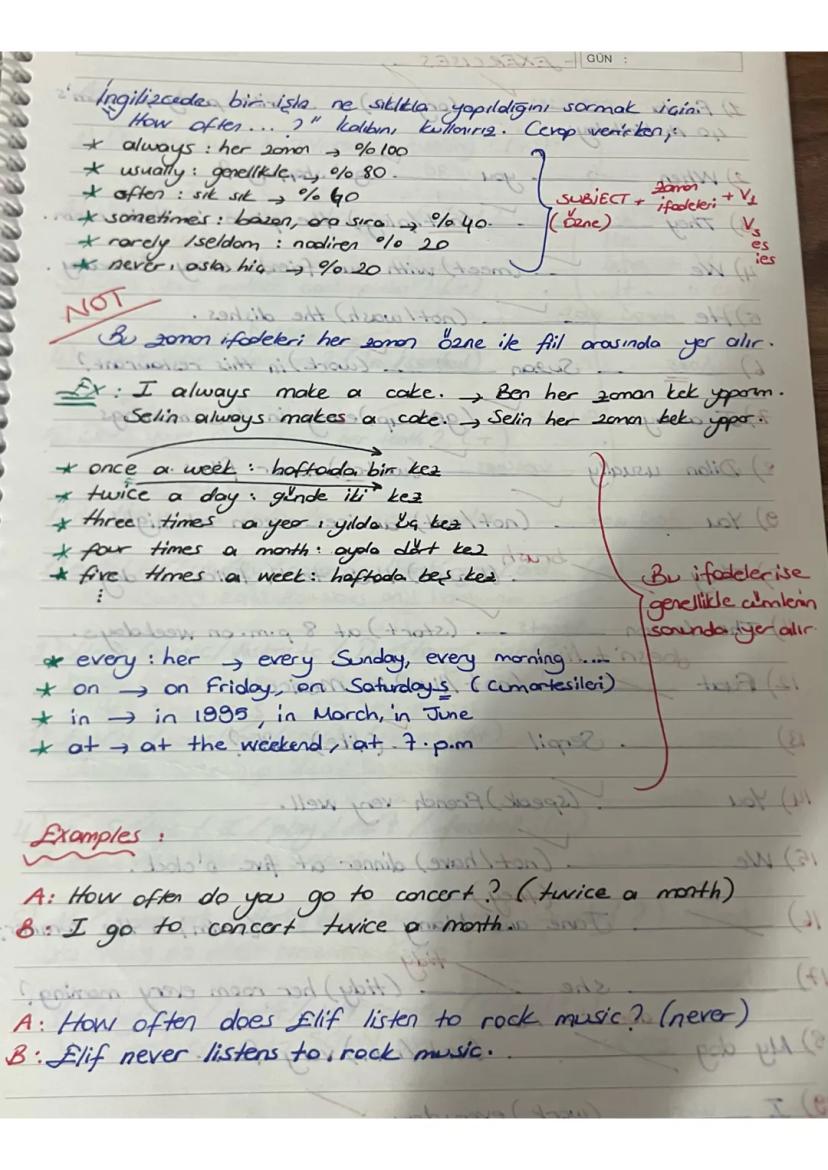 GÜN :
İngilizcede bir işin ne sıklıkla yapıldığını sormak için;
"How often...?" kalıbını kullanırız. Cevap verirken;
* always : her zaman → %100
* usually : genellikle → %80
* often : sık sık → %60
* sometimes : bazen, ara sıra → %40
* rarely / seldom : nadiren %20
* never : asla, hiç → %20
SUBJECT + zaman ifadeleri + V1
(Özne)
Vs
es
ies
NOT
Bu zaman ifadeleri her zaman Özne ile fiil arasında yer alır.
Ex : I always make a cake. → Ben her zaman kek yaparım.
Selin always makes a cake. → Selin her zaman kek yapar.
* once a week : haftada bir kez
* twice a day : günde iki kez
* three times a year : yılda üç kez
* four times a month : ayda dört kez
* five times a week : haftada beş kez
⋮
Bu ifadeler ise
genellikle cümlenin
sonunda yer alır.
* every : her → every Sunday, every morning ....
* on → on Friday, on Saturdays (cumartesileri)
* in → in 1995, in March, in June
* at → at the weekend, at 7 p.m
Examples :
A: How often do you go to concert? (twice a month)
B: I go to concert twice a month.
A: How often does Elif listen to rock music? (never)
B: Elif never listens to rock music.